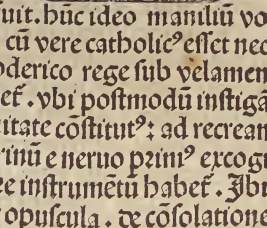 fuit. hūc ideo manliū vo
cū vere catholicꝰ eſſet nec
oderico rege ſub velamen
et᷑. vbi poſtmodū inſtigā
uitate cōſtitutꝰ: ad recrean
rinū e neruo primꝰ excog
re inſtrumētū habet᷑. Ibi
opuſcula. de cōſolatione